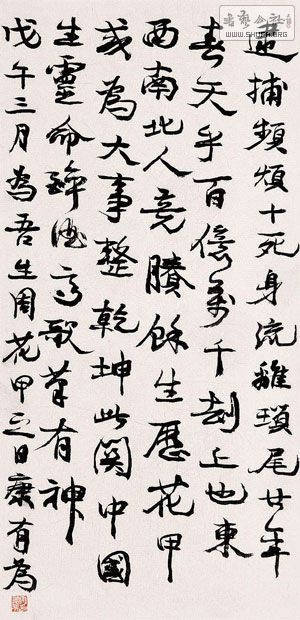 逮捕頻煩十死身流離瑣尾廿年
春天乎百億萬千劫上也東
西南北人竟賸餘生歷花甲
或為大事整乾坤此關中國
生靈命醉酒高歌筆有神
戊午三月為吾生周花甲之日康有為
書藝公社
WWW.SHUFA.ORG